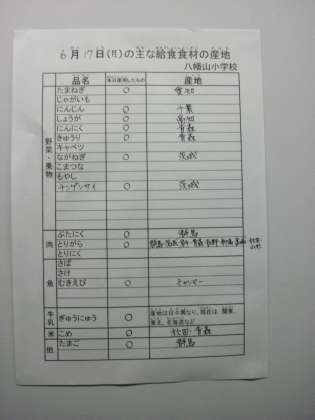 6月17日(月)の主な給食食材の産地
八幡山小学校
品名 本日使用したもの 産地
野菜・果物
たまねぎ ○
じゃがいも
にんじん ○ 千葉
しょうが ○ 高知
にんにく ○ 青森
きゅうり ○ 青森
キャベツ
ながねぎ ○ 茨城
こまつな
もやし
チンゲンサイ ○ 茨城
肉
ぶたにく ○ 群馬
とりがら ○
とりにく
魚
さば
さけ
むきえび ○ ミャンマー
牛乳 ぎゅうにゅう ○ 産地は日々異なり、現在は、関東、
東北、北海道など
米 こめ ○ 秋田・青森
他 たまご ○ 群馬